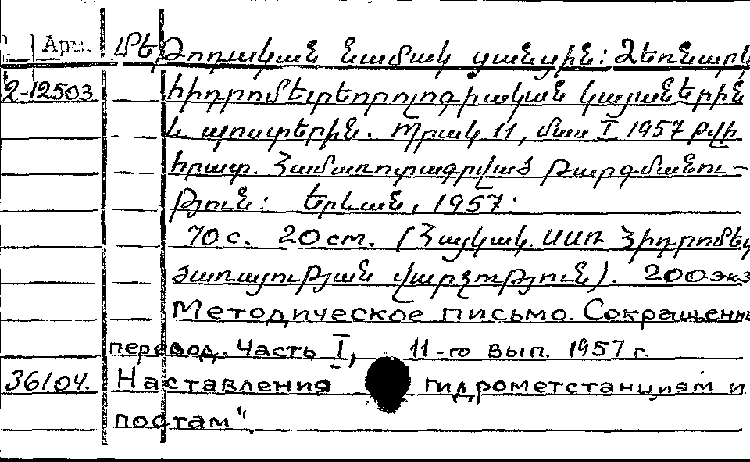 Арм. Մե Թողական նամակ ցանցին: Ձեռնարկ
2-12503 հիդրոմետեորոլոգիական կայաններին
և պոստերին. Պրակ 11, մաս I 1957 թվի
հրատ. Համառոտագրված թարգմանու-
թյուն: Երևան, 1957.
70 с. 20 cm. (Հայկակ. ՍՍՌ Հիդրոմետ
ծառայության վարչություն). 200 экз
Методическое письмо. Сокращенн
перевод. Часть I, 11-го вып. 1957 г.
36104. Наставления гидрометстанциям и
постам".